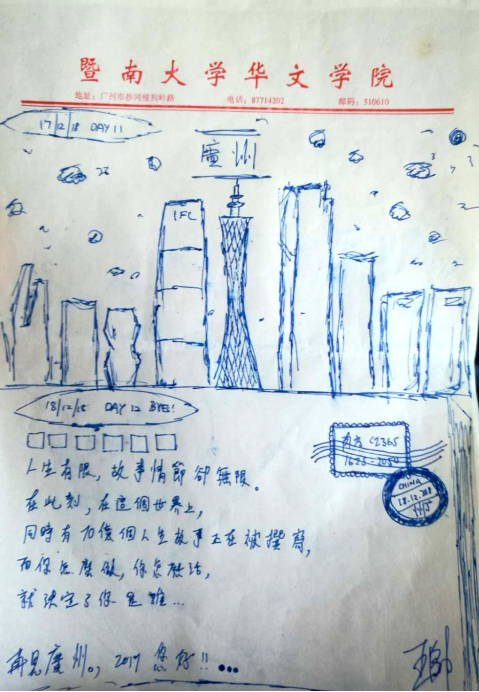 暨南大学华文学院
地址：广州市沙河瘦狗岭路 电话：87714202 邮码：510610
17/12/18 DAY 11
廣州
IFC
18/12/18 DAY 12 BYE!
CHINA
18.12.2018
人生有限，故事情節卻無限。
在此刻，在這個世界上，
同時有70億個人生故事正在被撰寫，
而你怎麼做，你怎麼活，
就決定了你是誰...
再見廣州。，2019您好!!...